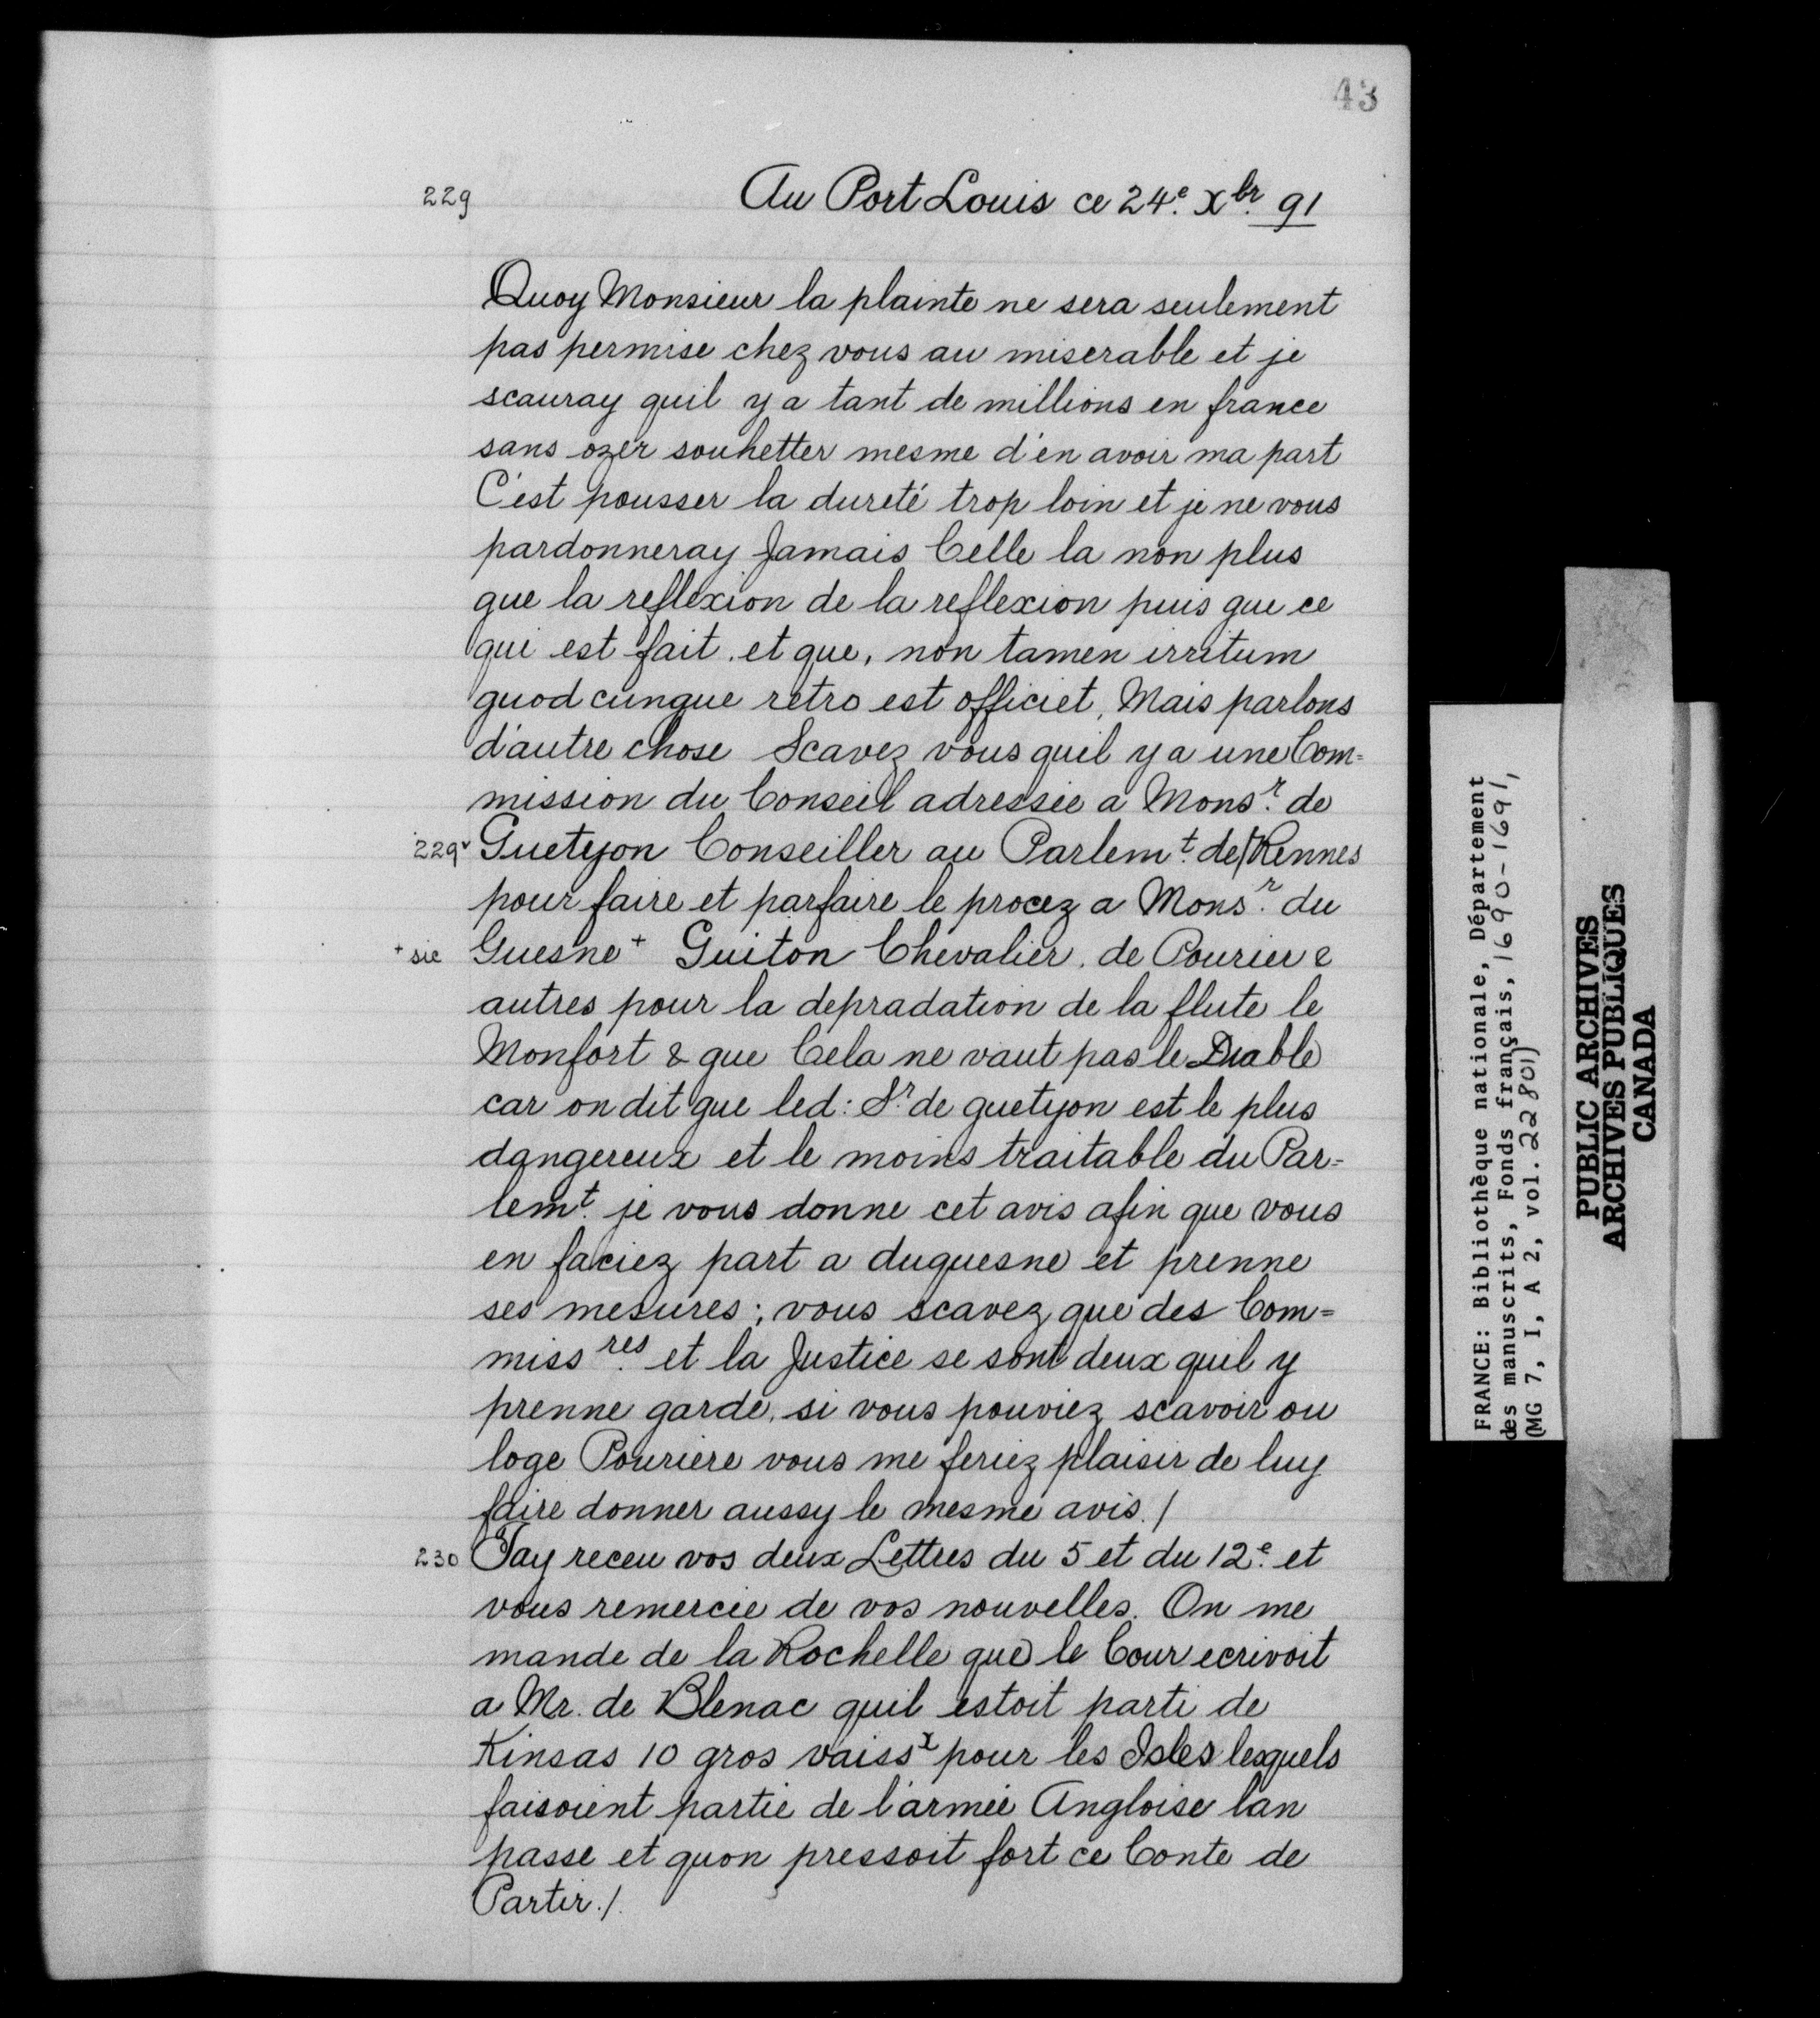 43
229 Au Port Louis ce 24e. Xbr. 91
Quoy Monsieur la plainte ne sera seulement
pas permise chez vous au miserable et je
scauray quil y a tant de millions en france
sans ozer souhetter mesme d'en avoir ma part
C'est pousser la dureté trop loin et je ne vous
pardonneray Jamais Celle la non plus
que la reflexion de la reflexion puis que ce
qui est fait. et que, non tamen irritum
quod cunque retro est officiet, Mais parlons
d'autre chose Scavez vous quil y a une Com=
mission du Conseil adressée a Monsr. de
229v Guetyon Conseiller au Parlemt. de/Rennes
pour faire et parfaire le procez a Monsr. du
+ sic Guesne+ Guiton Chevalier. de Pouriere
autres pour la depradation de la flute le
Monfort & que Cela ne vaut pas le Diable
car on dit que led: Sr. de guetyon est le plus
dangereux et le moins traitable du Par=
lemt. je vous donne cet avis afin que vous
en faciez part a duquesne et prenne
ses mesures; vous scavez que des Com=
missres. et la Justice se sont deux quil y
prenne garde, si vous pouviez scavoir ou
loge Pouriere vous me feriez plaisir de luy
faire donner aussy le mesme avis./
230 Jay receu vos deux Lettres du 5 et du 12e. et
vous remercie de vos nouvelles. On me
mande de la Rochelle que le Cour ecrivoit
a Mr. de Blenac quil estoit parti de
Kinsas 10 gros vaissx pour les Isles lesquels
faisoient partie de l'armée Angloise lan
passe et quon pressoit fort ce Conte de
Partir./.
FRANCE: Bibliothèque nationale, Département
des manuscrits, Fonds français, 1690-1691,
(MG 7, I, A 2, vol. 22801)
PUBLIC ARCHIVES
ARCHIVES PUBLIQUES
CANADA